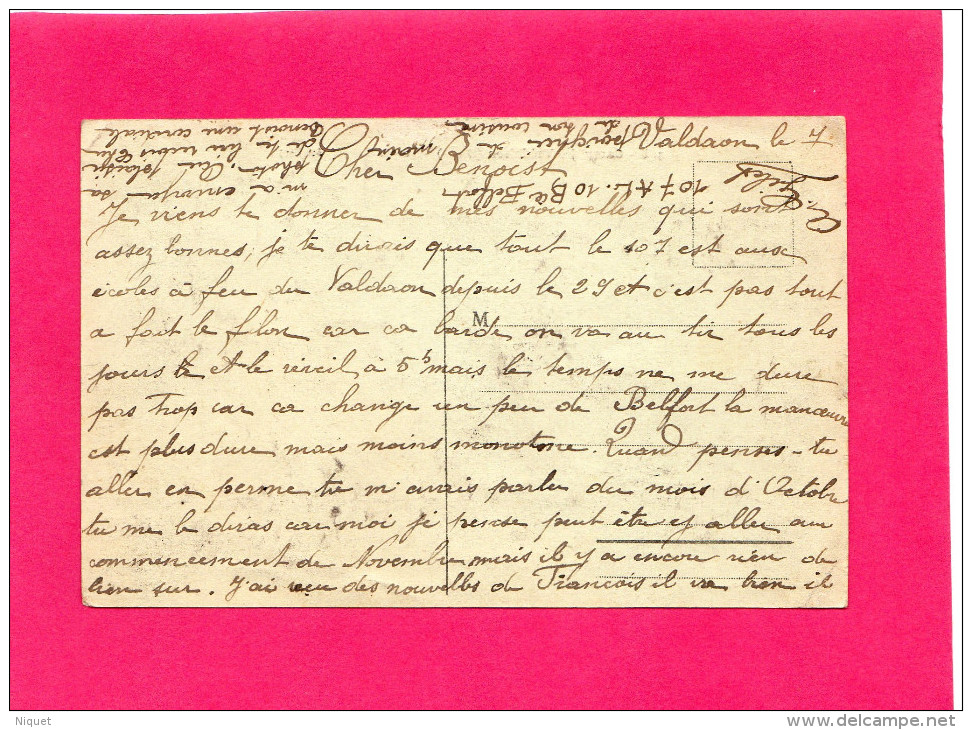 Valdaon le 7
Cher Benoist
Je viens te donner de mes nouvelles qui sont
assez bonnes, je te dirais que tout le 107 est aux
écoles à feu du Valdaon depuis le 29 et c'est pas tout
a fait le flon car ca barde on va au tir tous les
jours et le réveil à 5h mais le temps ne me dure
pas trop car ca change un peu de Belfort la manœuvre
est plus dure mais moins monotone. Quand penses-tu
aller en perme tu m'avais parler du mois d'Octobre
tu me le diras car moi je pense peut être y aller au
commencement de Novembre mais il y a encore rien de
bien sur. J'ai reçu des nouvelles de François il va bien il
m'a envoyer sa
photo.
de ton cousin
107 AL. 10 Bie Belfort
M
Niquet
delcampe.net